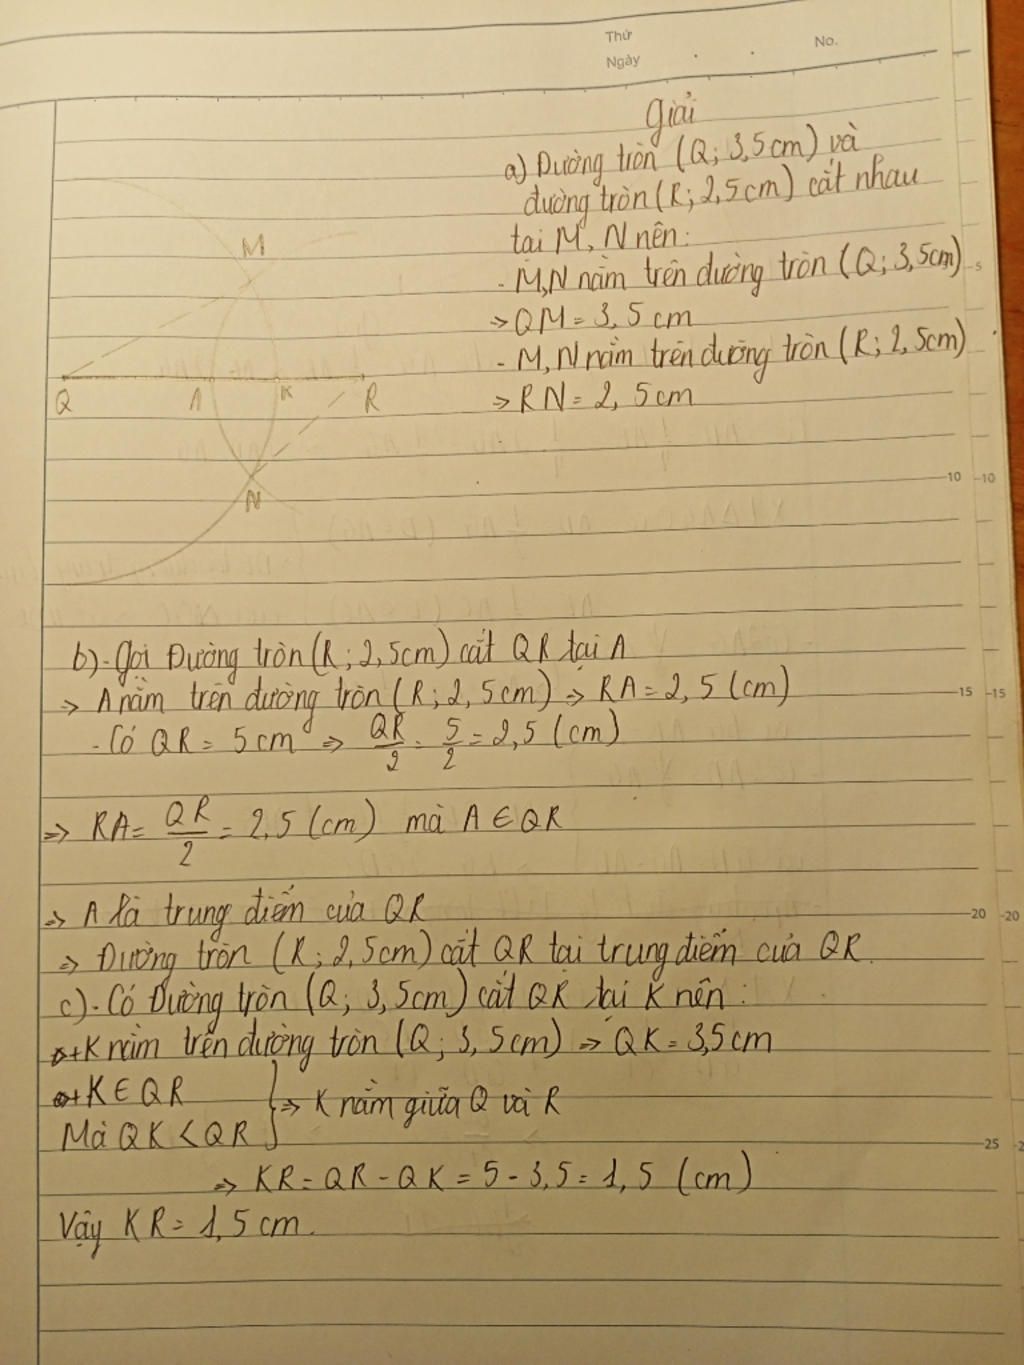 Thứ
Ngày
No.
Giải
a) Đường tròn (Q; 3,5cm) và
đường tròn (R; 2,5cm) cắt nhau
tại M, N nên:
- M,N nằm trên đường tròn (Q; 3,5cm)
=> QM = 3,5 cm
- M, N nằm trên đường tròn (R; 2,5cm)
=> RN = 2,5cm
M
Q A K R
N
5
10 10
b)- Gọi Đường tròn (R; 2,5cm) cắt QR tại A
=> A nằm trên đường tròn (R; 2,5cm) => RA = 2,5 (cm)
15 15
- Có QR = 5cm => QR/2 = 5/2 = 2,5 (cm)
=> RA = QR/2 = 2,5 (cm) mà A ∈ QR
=> A là trung điểm của QR
20 20
=> Đường tròn (R; 2,5cm) cắt QR tại trung điểm của QR.
c)- Có Đường tròn (Q; 3,5cm) cắt QR tại K nên:
+ K nằm trên đường tròn (Q; 3,5cm) => QK = 3,5cm
+ K ∈ QR
=> K nằm giữa Q và R
Mà QK < QR
25
=> KR = QR - QK = 5 - 3,5 = 1,5 (cm)
Vậy KR = 1,5cm.